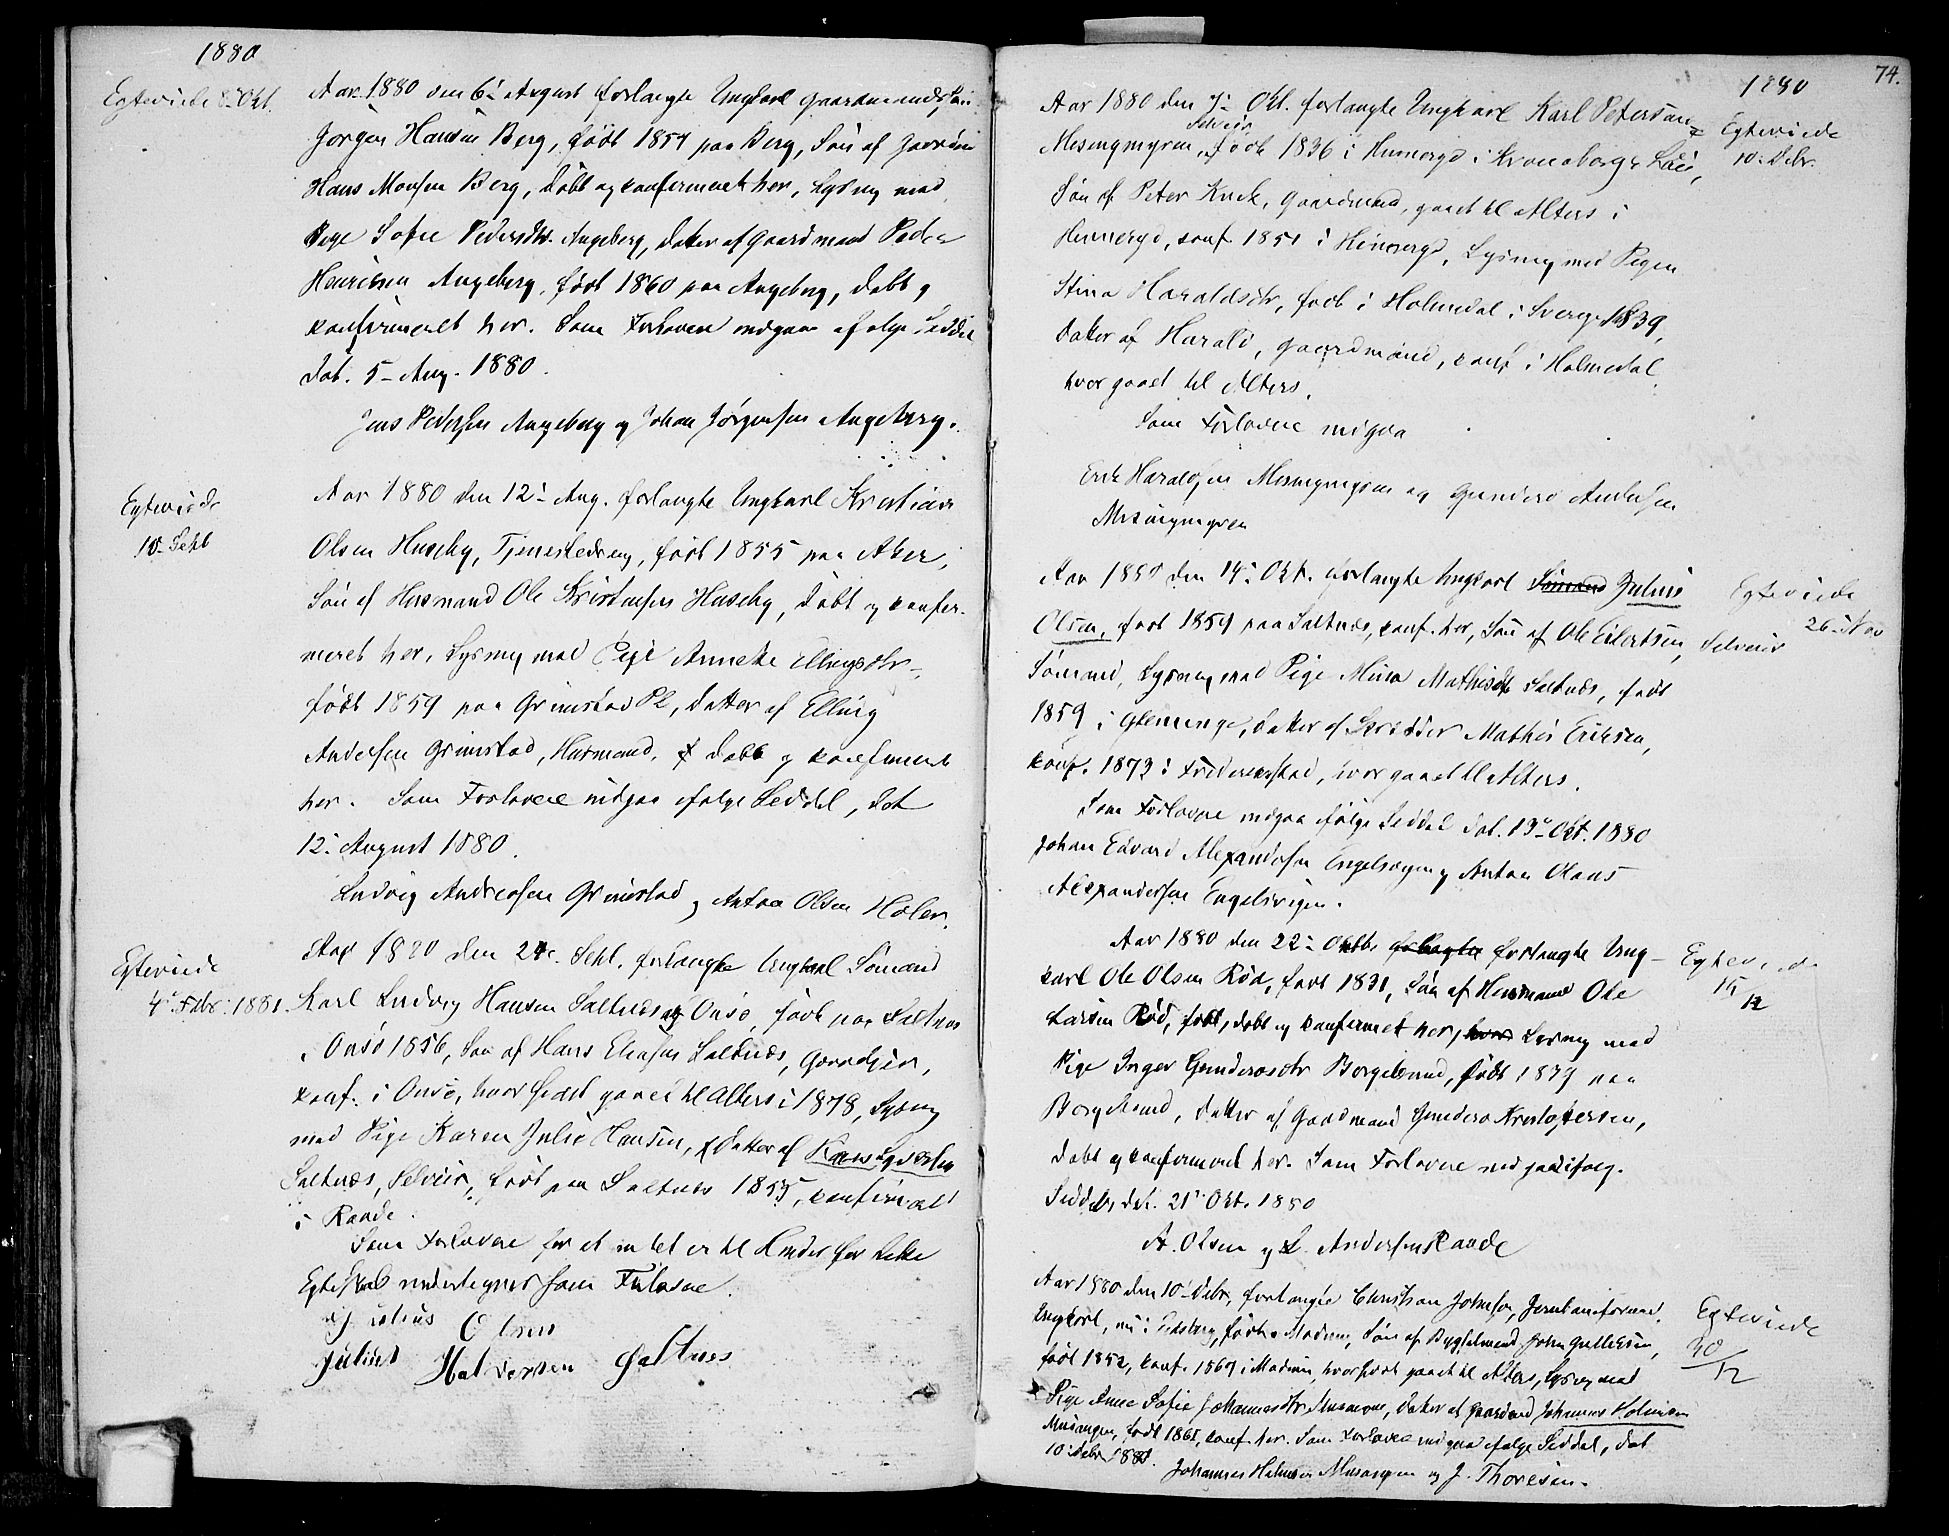 1880
Egteviede 8de Okt.
Aar 1880 den 6te August forlangte Ungkarl Gaardmandssøn
Jørgen Hansen Berg, født 1854 paa Berg, Søn af Gaardm.
Hans Monsen Berg, døbt og konfirmeret her, Lysning med
Pige Sofie Pedersdtr. Augeberg, Datter af Gaardmand Peder
Henriksen Augeberg, født 1860 paa Augeberg, døbt og
konfirmeret her. Som Forlovere indgaa ifølge Seddel
dat. 5te Aug. 1880.
Jens Pedersen Augeberg og Johan Jørgensen Augeberg.
Egteviede
10de Sept
Aar 1880 den 12te Aug. forlangte Ungkarl Kristian
Olsen Huseby, Tjenestedreng, født 1855 paa Aker,
Søn af Husmand Ole Kristensen Huseby, døbt og konfir-
meret her, Lysning med Pige Anneke Ellingsdtr.
født 1859 paa Grimstad Pl, Datter af Elling
Andersen Grimstad, Husmand, døbt og konfirmeret
her. Som Forlovere indgaa ifølge Seddel, dat
12te August 1880.
Ludvig Andreasen Grimstad og Anton Olsen Holer.
Egteviede
4de Febr. 1881.
Aar 1880 den 24de Sept. forlangte Ungkarl Sømand
Karl Ludvig Hansen Saltnæs af Onsø, født paa Saltnæs
i Onsø 1856, Søn af Hans Eliasen Saltnæs, Gaardejer,
konf. i Onsø, hvor sidst gaaet til Alters i 1878, Lysning
med Pige Karen Julie Hansen, Datter af Hans Syversen
Saltnæs, Selveier, født paa Saltnæs 1855, konfirmeret
i Raade.
Som Forlovere for at intet er til Hinder for dette
Egteskab undertegner som Forlovere.
Julius Olsen
Julius Halvorsen Saltnes
74.
1880
Aar 1880 den 7de Okt. forlangte Ungkarl Karl Petersen
Selveier
Mosengmyren, født 1836 i Hemergd i Kronobergs Læn,
Søn af Peter Knek, Gaardmand, gaaet til Alters i
Hemergd, konf. 1851 i Hemergd, Lysning med Pigen
Stina Haraldsdtr, født i Holmedal i Sverige 1839,
Datter af Harald, Gaardmand, konf i Holmedal,
hvor gaaet til Alters.
Som Forlovere indgaa
Erik Haraldsen Mosengmyren og Gundero Andersen
Mosengmyren
Egteviede
10de Debr.
Aar 1880 den 14de Okt. forlangte Ungkarl Sømand Julius
Olsen, født 1859 paa Saltnæs, konf. her, Søn af Ole Eilertsen, Selveier
Sømand, Lysning med Pige Mina Mathisdtr Saltnæs, født
1859 i Glemminge, Datter af Skrædder Mathis Eriksen,
konf. 1873 i Frederikstad, hvor gaaet til Alters.
Som Forlovere indgaa ifølge Seddel dat. 13de Okt. 1880
Johan Edvard Alexandersen Engelsvigen og Anton Olaus
Alexandersen Engelsvigen.
Egteviede
26de Nov
Aar 1880 den 22de Oktbr forlangte forlangte Ung-
karl Ole Olsen Rød, født 1831, Søn af Husmand Ole
Larsen Rød, født, døbt og konfirmeret her, hvor Lysning med
Pige Inger Gunderosdtr Borgelsund, født 1839 paa
Borgelsund, Datter af Gaardmand Gundero Kristofersen,
døbt og konfirmeret her. Som Forlovere indgaa ifølg.
Seddel, dat. 21de Okt. 1880
A. Olsen og L. Andersen Raade
Egteviede
15/12
Aar 1880 den 10de Debr, forlangte Christian Johnsen, Jernbaneformand,
Ungkarl, nu i Eidsberg, født i Modum, Søn af Bygselmand John Gulliksen,
født 1852, konf. 1867 i Modum, hvor sidst gaaet til Alters, Lysning med
Pige Anne Sofie Johannesdtr Musangen, Datter af Gaardmd Johannes Holmsen
Musangen, født 1861, konf. her. Som Forlovere indgaa ifølge Seddel, dat
10de Debr 1880.
Johannes Holmsen Musangen og J. Thoresen.
Egteviede
30/12